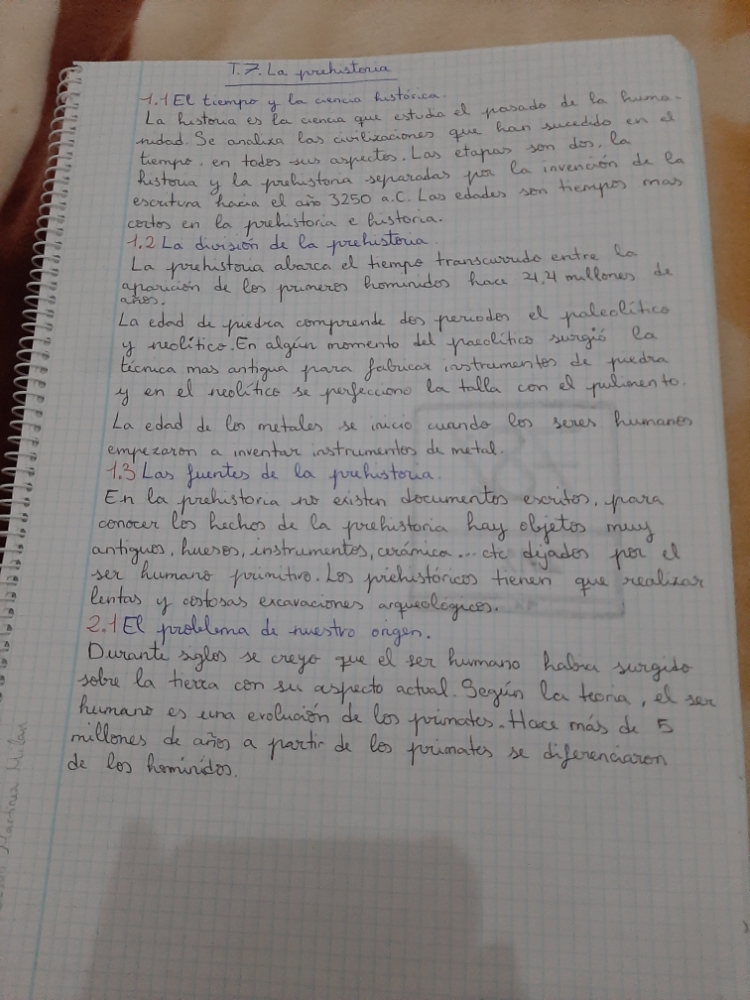 T.7. La prehistoria
1.1 El tiempo y la ciencia histórica.
La historia es la ciencia que estudia el pasado de la huma-
nidad. Se analiza las civilizaciones que han sucedido en el
tiempo, en todos sus aspectos. Las etapas son dos, la
historia y la prehistoria separadas por la invención de la
escritura hacia el año 3250 a.C. Las edades son tiempos mas
cortos en la prehistoria e historia.
1.2 La división de la prehistoria
La prehistoria abarca el tiempo transcurrido entre la
aparición de los primeros hominidos hace 4 millones de
años.
La edad de piedra comprende dos periodos el paleolítico
y neolítico. En algún momento del paeolítico surgió la
técnica mas antigua para fabricar instrumentos de piedra
y en el neolítico se perfecciono la talla con el pulimento.
La edad de los metales se inicio cuando los seres humanos
empezaron a inventar instrumentos de metal.
1.3 Las fuentes de la prehistoria.
En la prehistoria no existen documentos escritos, para
conocer los hechos de la prehistoria hay objetos muy
antiguos, huesos, instrumentos, cerámica... etc dejados por el
ser humano primitivo. Los prehistóricos tienen que realizar
lentas y costosas excavaciones arqueológicos.
2.1 El problema de nuestro origen.
Durante siglos se creyo que el ser humano habia surgido
sobre la tierra con su aspecto actual. Según la teoria, el ser
humano es una evolución de los primates. Hace más de 5
millones de años a partir de los primates se diferenciaron
de los homínidos.
Martinez Milan